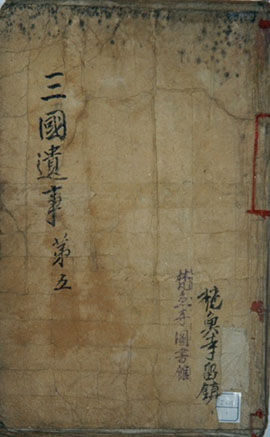 三國遺事 第五
梵魚寺圖書館
梵魚寺留鎭